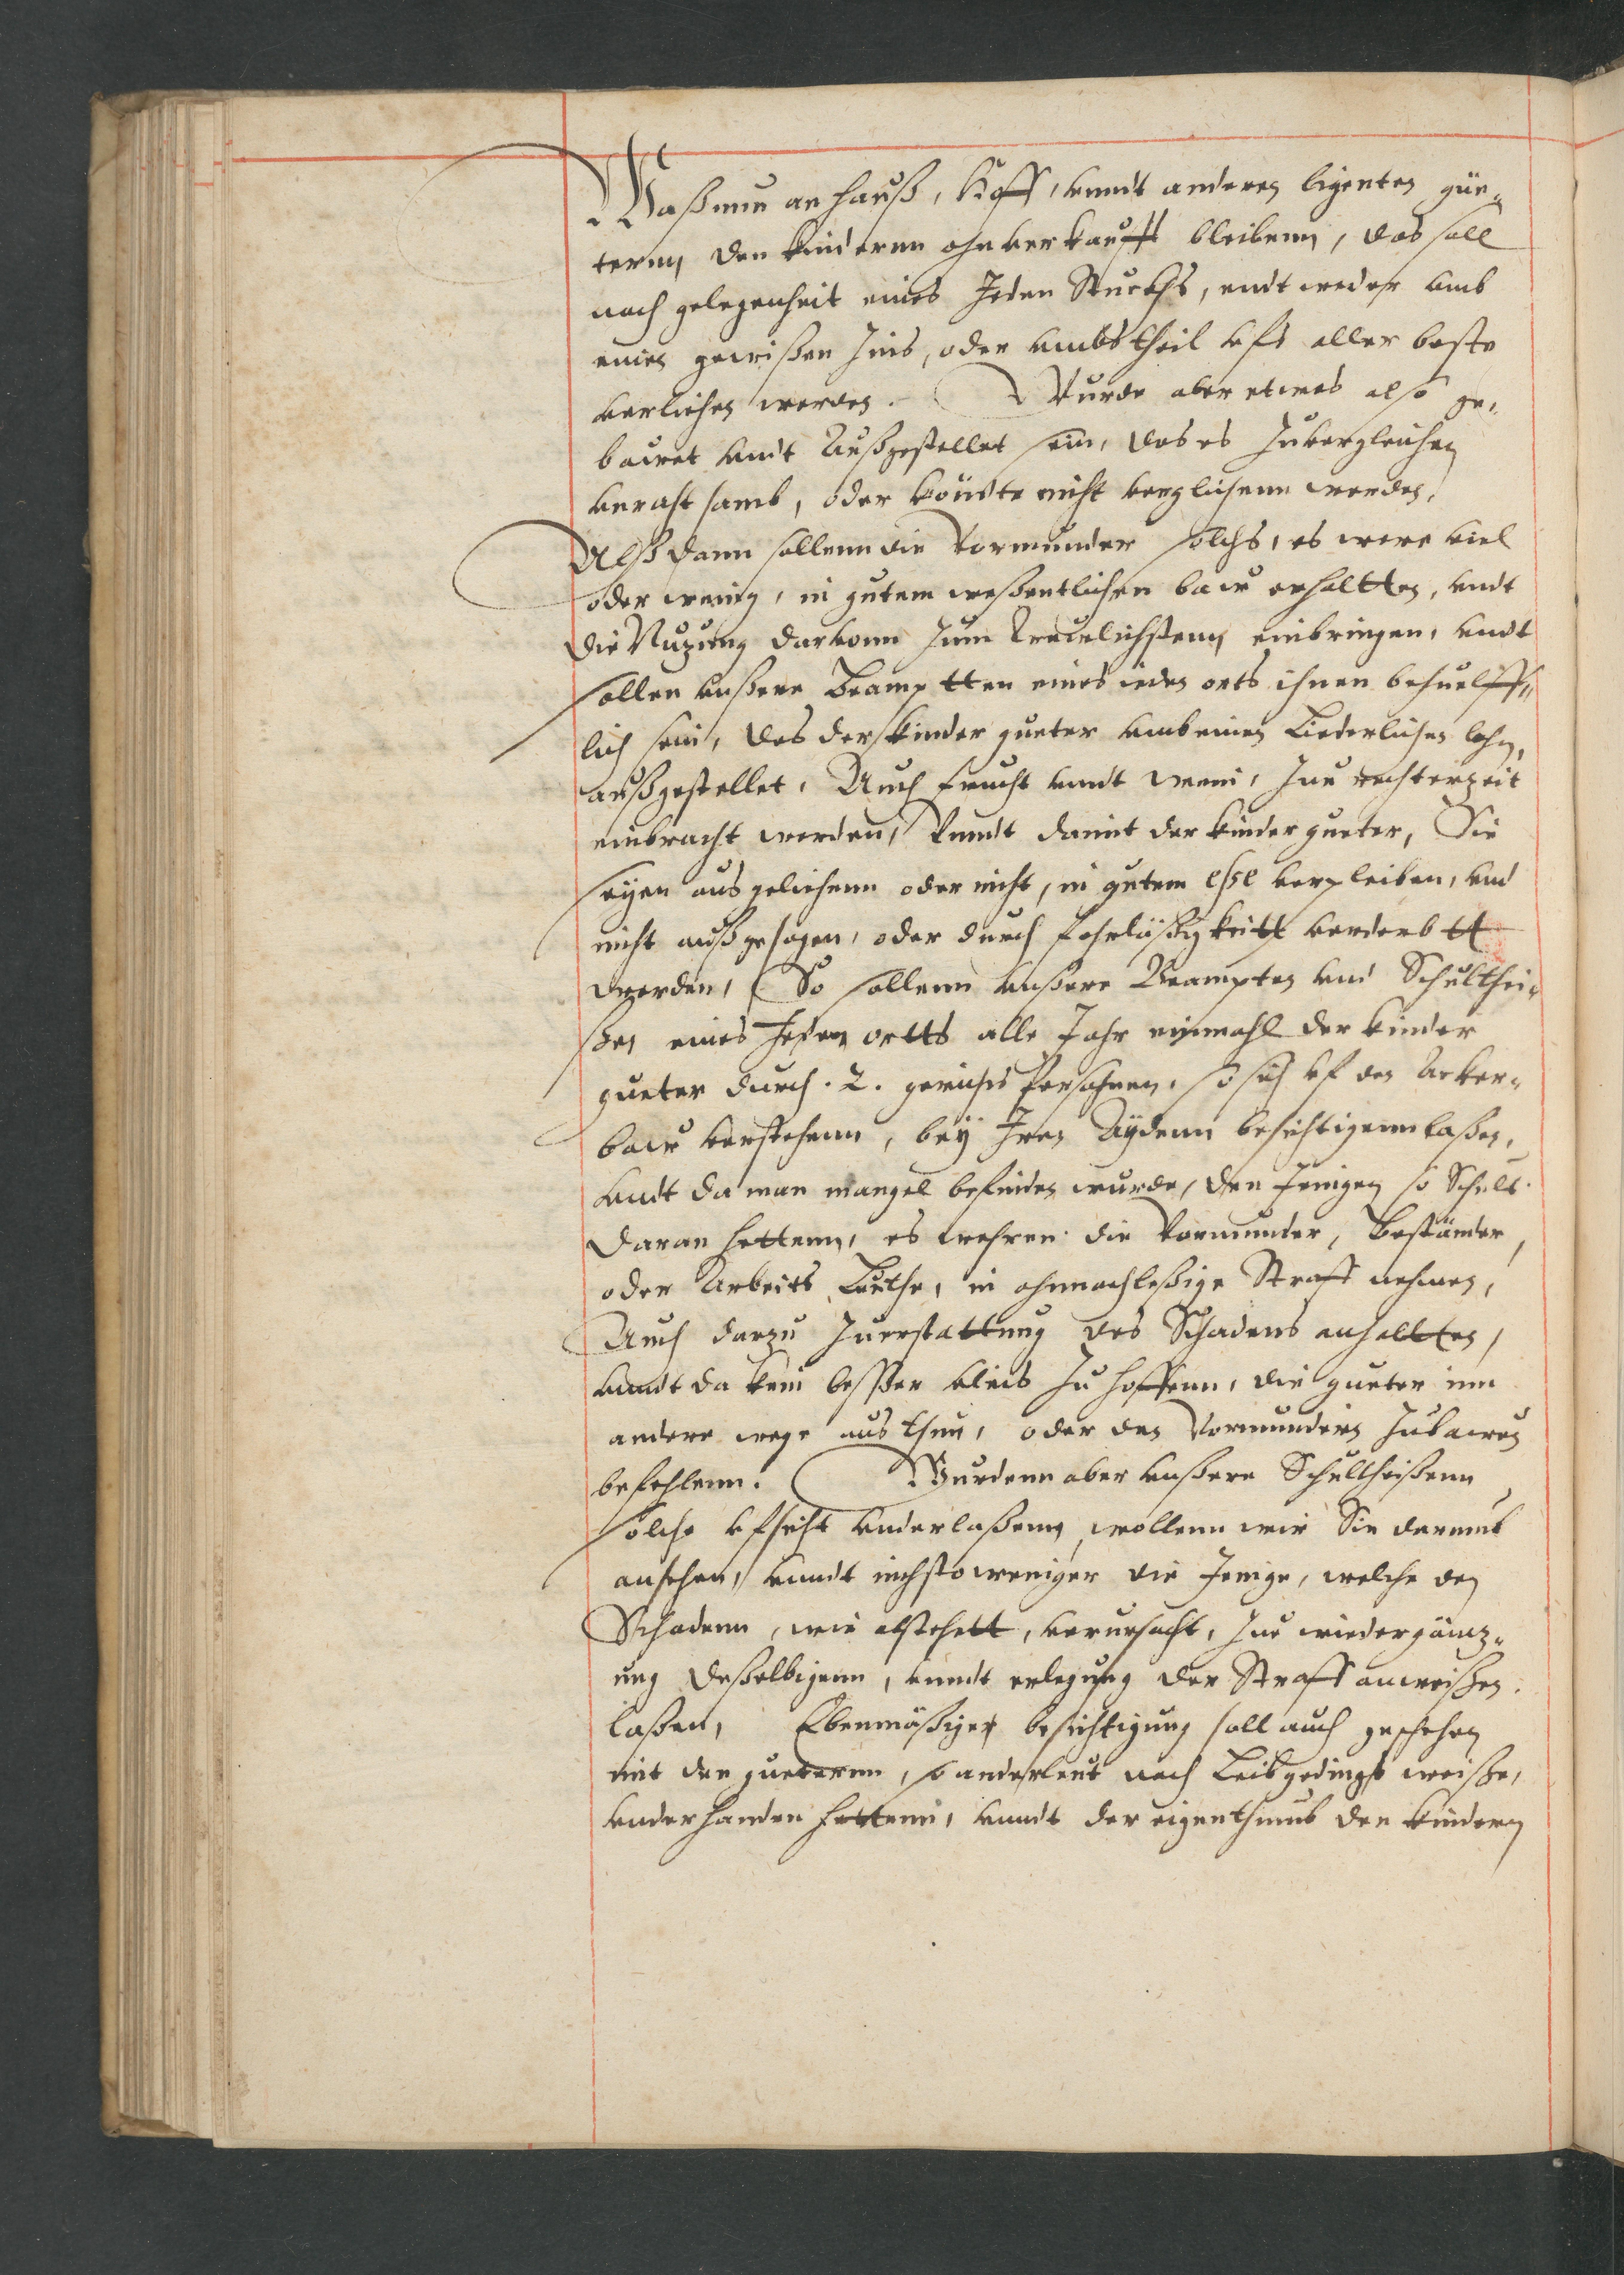 Waß nun an hauß, Hoff, vnndt anderen ligenten güe„
terenn den kinderenn ohnverkaufft bleibenn, das soll
nach gelegenheit eines Jeden Stuckhs, endtweder vmb
einen gewißen Zins, oder vmbs theil vfs aller beste
verliehen werden. Wurde aber etwas also ge„
bauet vndt Außgestellet sein, das es Zuvergleichen
vnrahtsamb, oder köndte nicht verglichenn werden,
Alßdann sollenn die Vormünder solchs, es were viel
oder wenig, in gutem weßentlichen bauw erhaltten, vndt
die Nuzung darvonn Zum Treuwlichstenn einbringen, vndt
sollen vnßere Beamptten eines ieden orts ihnen behuelff„
lich sein, das der kinder gueter vmb einen Liederlichen lohn,
außgestellet, Auch frucht vnndt wein, Zue rechterzeit
einbracht werden, Vnndt damit der kinder gueter, Sie
seyen ausgeliehenn oder nicht, in gutem esse verpleiben, vnd
nicht außgesogen, oder durch fahrläßigkeitt verderbtt
werden, So sollenn vnßere Beampten vnd Schulthei„
ßen eines Jeden ortts alle Jahr einmahl der kinder
gueter durch .2. gerichts Persohnen, so sich vf den Acker„
bauw verstehenn, bey Iren Aydenn besichtigenn laßen,
vndt da man mangel befinden wurde, den Jenigen so Schult
daran hettenn, es wehren die Vormünder, Beständer,
oder Arbeits Leuthe, in ohnnachleßige Straff nehmen,
Auch darzu Zuerstattung des Schadens anhaltten,
vnndt da kein besser vleis Zu hoffenn, die gueter inn
andere wege aus thun, oder den Vormündern Zubauwen
befehlenn. Wurdenn aber vnßere Schultheißenn
solche vfsicht vnderlaßenn, wollenn wir Sie darumb
ansehen, vnndt nichstoweniger die Jenige, welche den
Schadenn, wie obstehett, verursacht, Zue wiedergäntz„
ung deßelbigenn, vnndt erlegung der Straff anweißen
laßen, Ebenmäßiges besichtigung soll auch geschehen
mit den gueterenn, so anderleut nach Leibgedings weiße,
vnderhanden hettenn, vnndt der eigenthumb den kindern